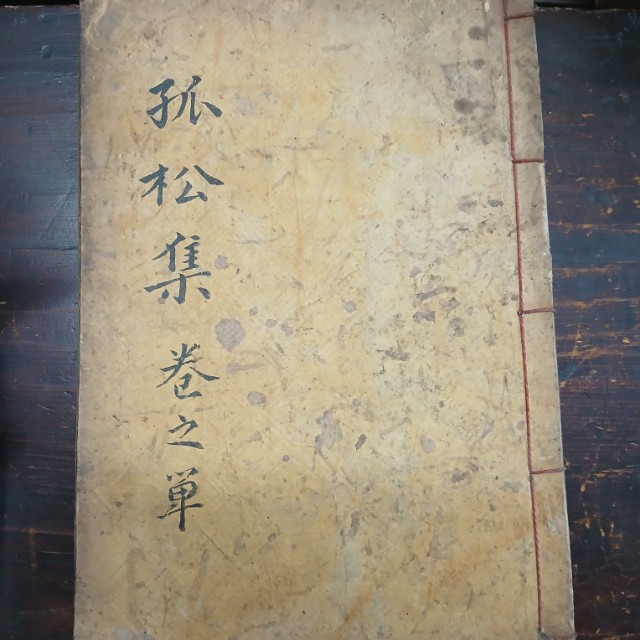 孤松集 卷之單